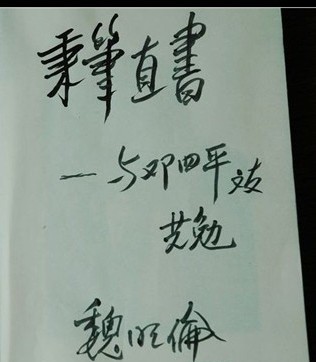 秉筆直書
—与邓四平文友
共勉
魏明倫